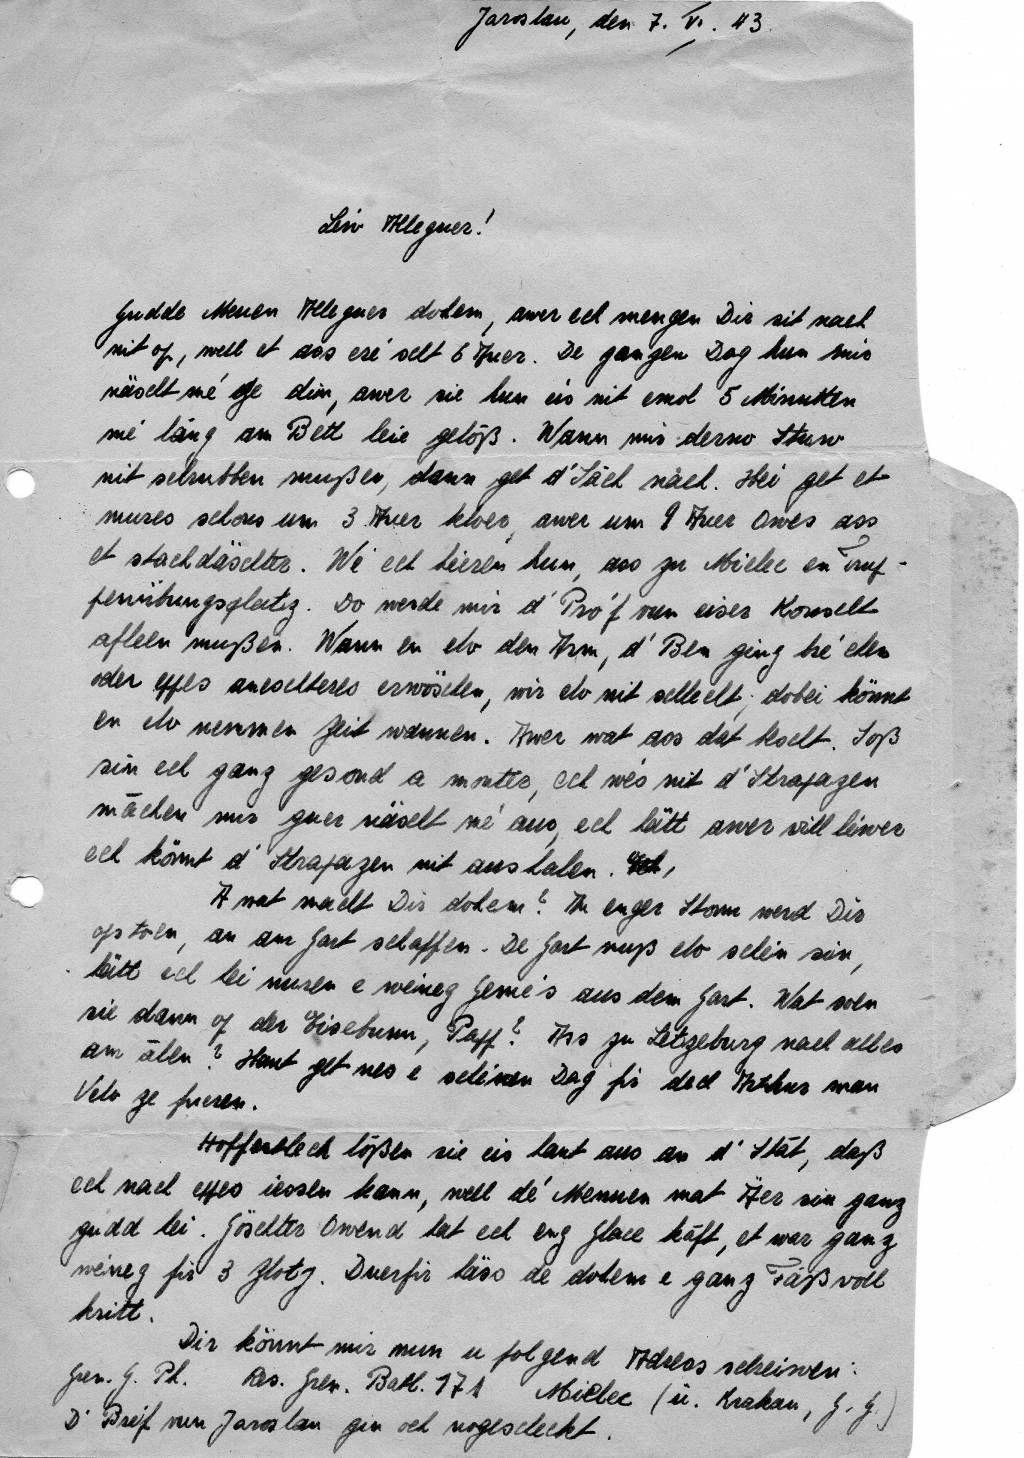 Jaroslau, den 7. VI. 43.
Léiw Alleguer!
Gudde Muen Alleguer dohem, awer ech mengen Dir sit nach
nit op, well et ass eré selt 6 Auer. De ganzen Dag hun mir
näscht mé ze din, awer sie hun eis nit emol 5 Minutten
mé läng am Bett leie gelöß. Wann mir derno Stuw
nit schrubben mußen, dann get d'Säch näch. Hei get et
mures schons um 3 Auer kloer, awer um 9 Auer Owes ass
et stachdäschter. Wé ech héieren hun, ass zu Mielec en Trup-
penübungsplatz. Do werde mir d'Pröf vun eiser Konscht
afleen mußen. Wann en do den Arm, d'Ben ging bré
oder eppes aneschteres erwöschen, wir do nit schlecht, dobei könnt
en do nemmen Zeit wannen. Awer wat ass dat kascht. Soß
sin ech ganz gesond a monter, ech wés nit d'Strapazen
mächen mir guer näscht mé aus, ech hätt awer vill léiwer
ech könnt d'Strapazen nit aushalen.
A wat macht Dir dohem? An enger Stonn werd Dir
opstoen, an am Gart schaffen. De Gart muß do schéin sin,
hätt ech hei nuren e wéineg Geméis aus dem Gart. Wat soen
sie dann op der Eisebunn, Papp? Ass zu Létzeburg nach alles
am älen? Haut get nes e schéinen Dag fir dech Arthur man
Velo ze fueren.
Hoffentlech lößen sie eis haut aus an d'Stät, daß
ech nach eppes iessen kann, well dé Mennen mat Äer sin ganz
gudd hei. Göschter Owend hat ech eng Glace käft, et war ganz
wéineg fir 3 Zloty. Duerfir häss de dohem e ganz Fäß voll
kritt.
Dir könnt mir nun u folgend Adress schreiwen:
Gren. G. Ph. Res. Gren. Batl. 171 Mielec (ü. Krakau, G. G.)
D'Bréif vun Jaroslau gin och nogescheckt.